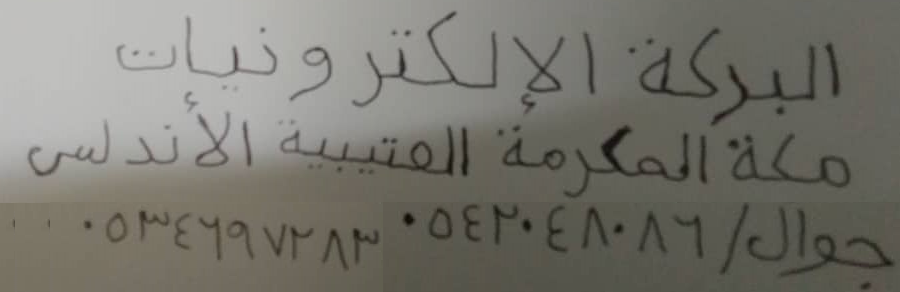 البركة الإلكترونيات
مكة المكرمة العتيبية الأندلس
جوال/ ٠٥٤٢٠٤٨٠٨٦ ٠٥٣٤٦٩٧٢٨٣